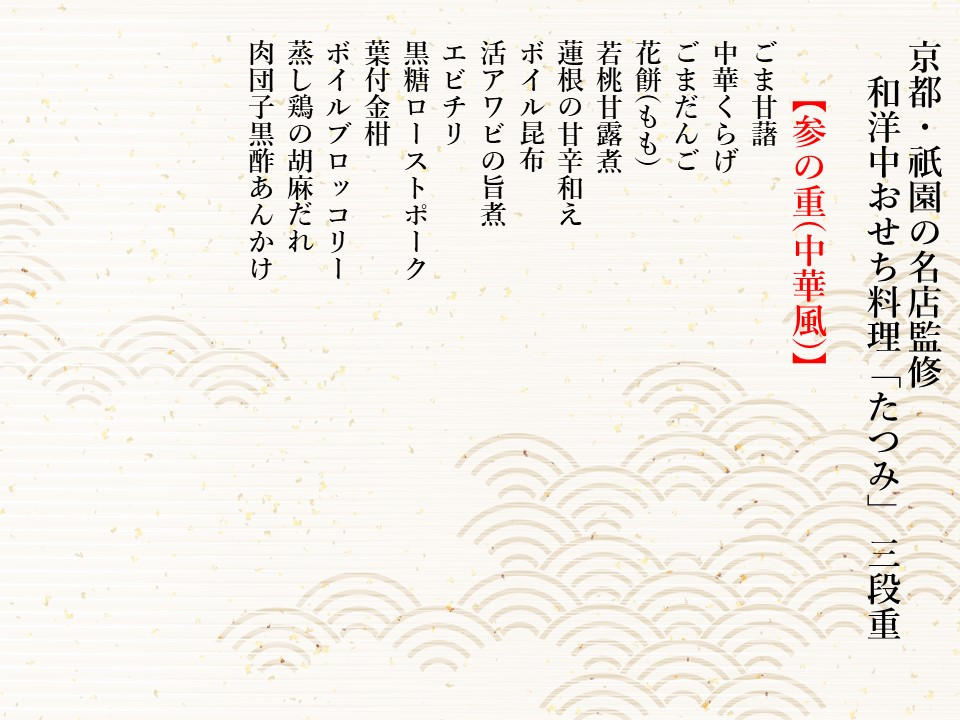 京都・祇園の名店監修
和洋中おせち料理「たつみ」 三段重
【参の重(中華風)】
ごま甘藷
中華くらげ
ごまだんご
花餅(もも)
若桃甘露煮
蓮根の甘辛和え
ボイル昆布
活アワビの旨煮
エビチリ
黒糖ローストポーク
葉付金柑
ボイルブロッコリー
蒸し鶏の胡麻だれ
肉団子黒酢あんかけ